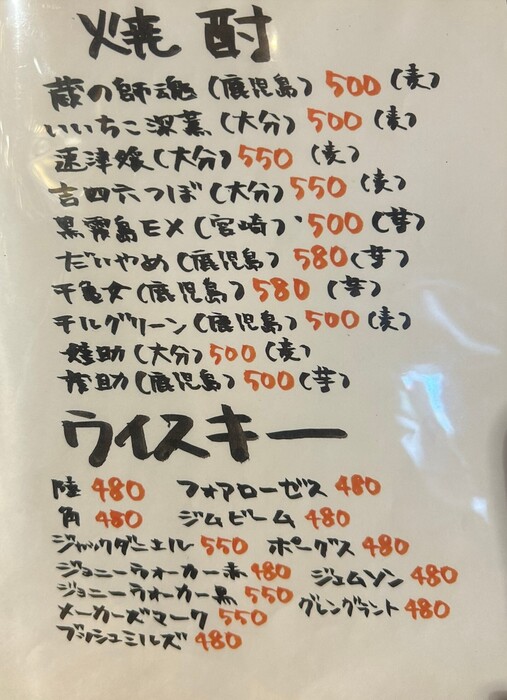 焼酎
蔵の師魂(鹿児島) 500 (麦)
いいちこ深薫(大分) 500 (麦)
速津媛(大分) 550 (麦)
吉四六つぼ(大分) 550 (麦)
黒霧島EX(宮崎) 500 (芋)
だいやめ(鹿児島) 580 (芋)
千亀女(鹿児島) 580 (芋)
チルグリーン(鹿児島) 500 (麦)
助(大分) 500 (麦)
助(鹿児島) 500 (芋)
ウイスキー
陸 480 フォアローゼス 480
角 450 ジムビーム 480
ジャックダニエル 550 ポーグス 480
ジョニーウォーカー赤 480 ジェムソン 480
ジョニーウォーカー黒 550 グレングラント 480
メーカーズマーク 550
ブッシュミルズ 480